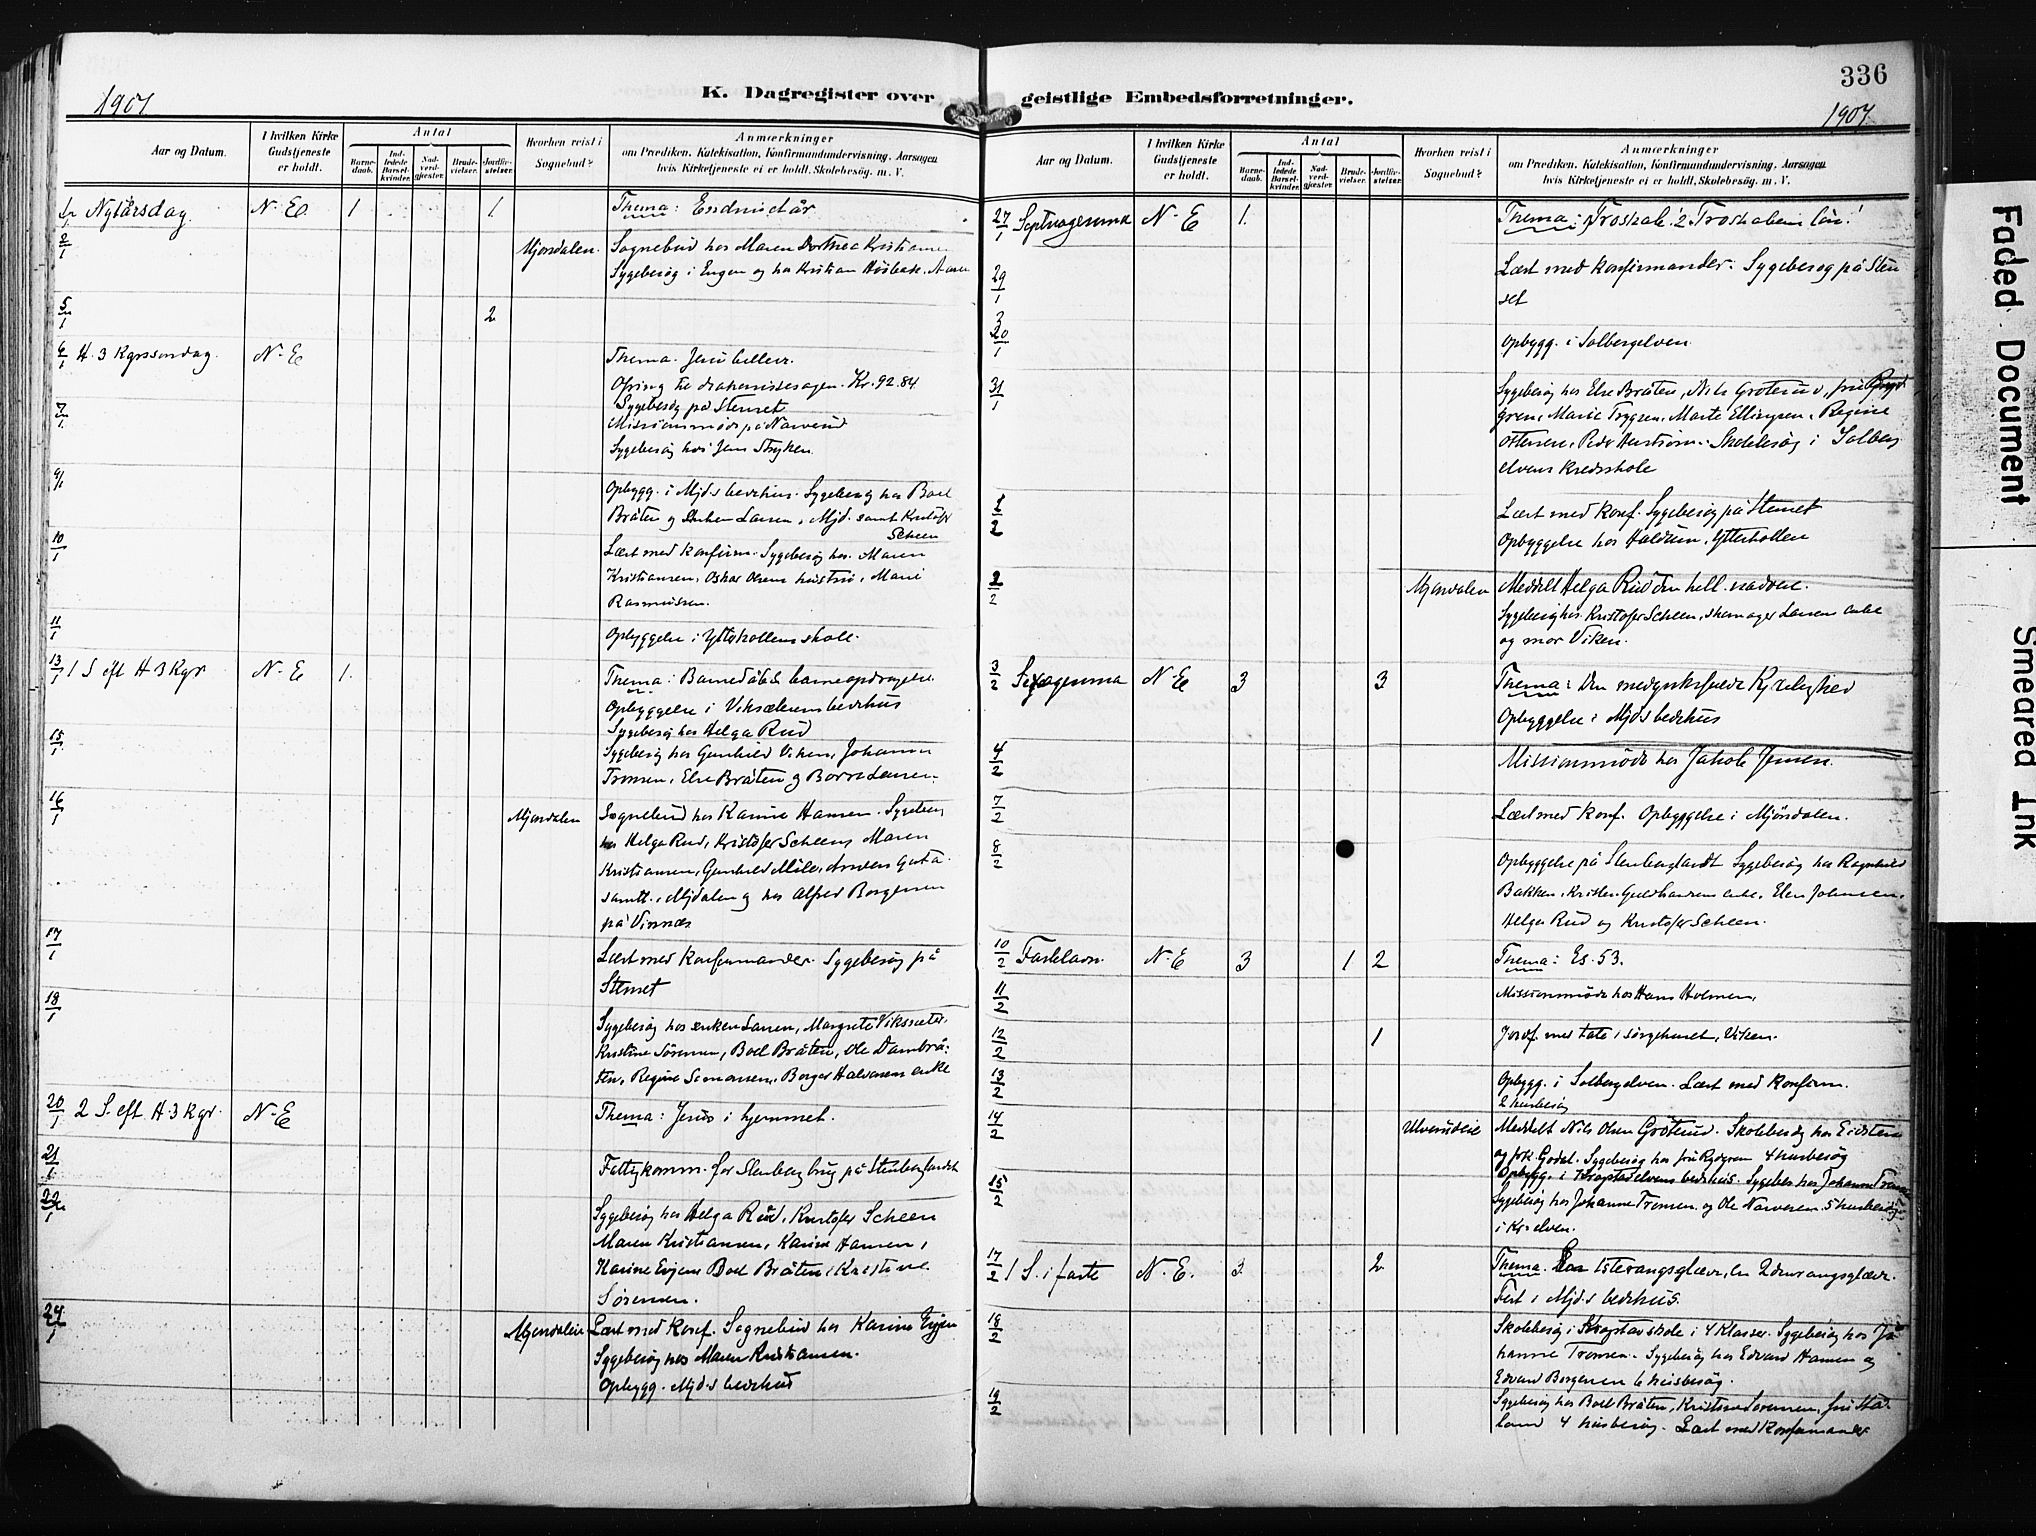 336
K. Dagregister over geistlige Embedsforretninger.
1907
1907.
Aar og Datum.
I hvilken Kirke Gudstjeneste er holdt.
Antal
Barnedaab.
Indledede Barselkvinder.
Nadverdgjester.
Brudevielser.
Jordfæstelser.
Hvorhen reist i Sognebud?
Anmærkninger
om Prædiken, Katekisation, Konfirmandundervisning, Aarsagen
hvis Kirketjeneste ei er holdt, Skolebesøg. m. V.
1/1 Nytårsdag N-E. 1 1 Thema: Endnu et år
2/1 Mjøndalen. Sognebud hos Maren Dorthea Kristiansen
Sygebesøg i Engen og hos Kristian
5/1 2
6/1 H. 3 Kgrssøndag. N-E Thema. Jesu
Ofring til Kr. 92.84
Sygebesøg på Stenset
7/1 Missionsmøde på Narverud
Sygebesøg hos Jens Stryken.
9/1 Opbygg. i Mjd.s bedehus. Sygebesøg hos Boel
Bråten og Enken Larsen, Mjd. samt Kristofer
Scheen
10/1 Læst med konfirm. Sygebesøg hos Maren
Kristiansen, Oskar Olsens hustru, Marie
Rasmussen.
11/1 Opbyggelse i Ytterkollens skole.
13/1 1 S. eft H 3 Kgr N-E 1. Thema: Barnedåb & barneopdragelse.
Opbyggelse i bedehus
Sygebesøg hos Helga Rud
15/1 Sygebesøg hos Gunhild Viken, Johanne
Tronsen, Else Bråten og Børre Larsen.
16/1 Mjøndalen Sognebud hos Karine Hansen. Sygebesøg
hos Helga Rud, Kristofer Scheen, Maren
Kristiansen, Gunhild Mile,
samtl. i Mjdalen og hos Alfred Borgersen
på Vinnes
17/1 Læst med Konfirmander. Sygebesøg på
Stenset
18/1 Sygebesøg hos enken Larsen, Margrete Viksæter,
Kristine Sørensen, Boel Bråten, Ole Dambrå-
ten, Regine Simonsen, Borger Halvorsens enke
20/1 2 S. eft. H. 3 Kgr. N-E Thema: Jesus i hjemmet.
21/1 Fattigkomm. for Stenberg brug på Stenberglandet
22/1 Sygebesøg hos Helga Rud, Kristofer Scheen
Maren Kristiansen, Karine Hansen,
Karine Evjen, Boel Bråten, Kristine
Sørensen.
24/1 Mjøndalen Læst med Konf. Sognebud hos Karine Evjen
Sygebesøg hos Maren Kristiansen.
Opbygg. Mjd.s bedehus
Aar og Datum.
I hvilken Kirke Gudstjeneste er holdt.
Antal
Barnedaab.
Indledede Barselkvinder.
Nadverdgjester.
Brudevielser.
Jordfæstelser.
Hvorhen reist i Sognebud?
Anmærkninger
om Prædiken, Katekisation, Konfirmandundervisning, Aarsagen
hvis Kirketjeneste ei er holdt, Skolebesøg. m. V.
27/1 Septuagesima N-E 1. Thema: Troskab. 2 Troskabens løn!
29/1 Læst med konfirmander. Sygebesøg på Sten-
set
30/1 Opbygg. i Solbergelven.
31/1 Sygebesøg hos Else Bråten, Nils Grøterud, fru Ryd-
gren, Marie Trygsen, Marte Ellingsen, Regine
Ostensen, Skolebesøg i Solberg-
elvens Kredsskole
1/2 Læst med Konf. Sygebesøg på Stenset
Opbyggelse hos Ytterkollen
2/2 Mjøndalen Meddelt Helga Rud den hell. nadver.
Sygebesøg hos Kristofer Scheen, skomager Larsens enke
og mor Viken.
3/2 Sexagesima N-E 3 3 Thema: Den Kjærlighed
Opbyggelse i Mjd.s bedehus
4/2 Missionsmøde hos Jakob Jensen.
7/2 Læst med Konf. Opbyggelse i Mjøndalen.
8/2 Opbyggelse på Stenberglandt Sygebesøg hos Ragnhild
Bakken, Kristen Guldhansens enke, Elen Johnsen,
Helga Rud og Kristofer Scheen.
10/2 Fastelavn. N-E 3 1 2 Thema: Es. 53.
11/2 Missionsmøde hos Hans Holmen,
12/2 1 Jordf. med tale i sørgehuset, Viken.
13/2 Opbygg. i Solbergelven. Læst med konfirm.
2 husbesøg
14/2 Ulverudeie Meddelt Nils Olsen Grøterud. Skolebesøg hos Eidsten
og frk. Godal. Sygebesøg hos fru Rydgren 4 husbesøg
15/2 Opbygg. i Krogstadelvens bedehus. Sygebes. hos Johanne Tronsen
Sygebesøg hos Johanne Tronsen og Ole Narvesen. 5 husbesøg
i Kr.elven.
17/2 1 S. i faste N. E. 3 2 Thema. En 1sterangsglæde, en 2denrangsglæde.
Fest i Mjd.s bedehus.
18/2 Skolebesøg i Krogstad skole i 4 Klasser. Sygebesøg hos Jo-
hanne Tronsen. Sygebesøg hos Edvard Hansen og
Edvard Borgersen 6 husbesøg.
19/2 Sygebesøg hos Boel Bråten, Kristine Sørensen, fru
4 husbesøg. Læst med Konfirmander
Faded Document
Smeared Ink